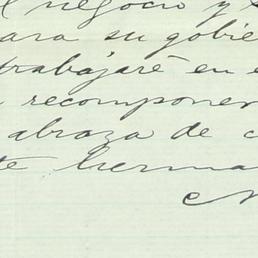 l negocio y s
ara su gobie
trabajaré en e
recomponer
abraza de c
te herma